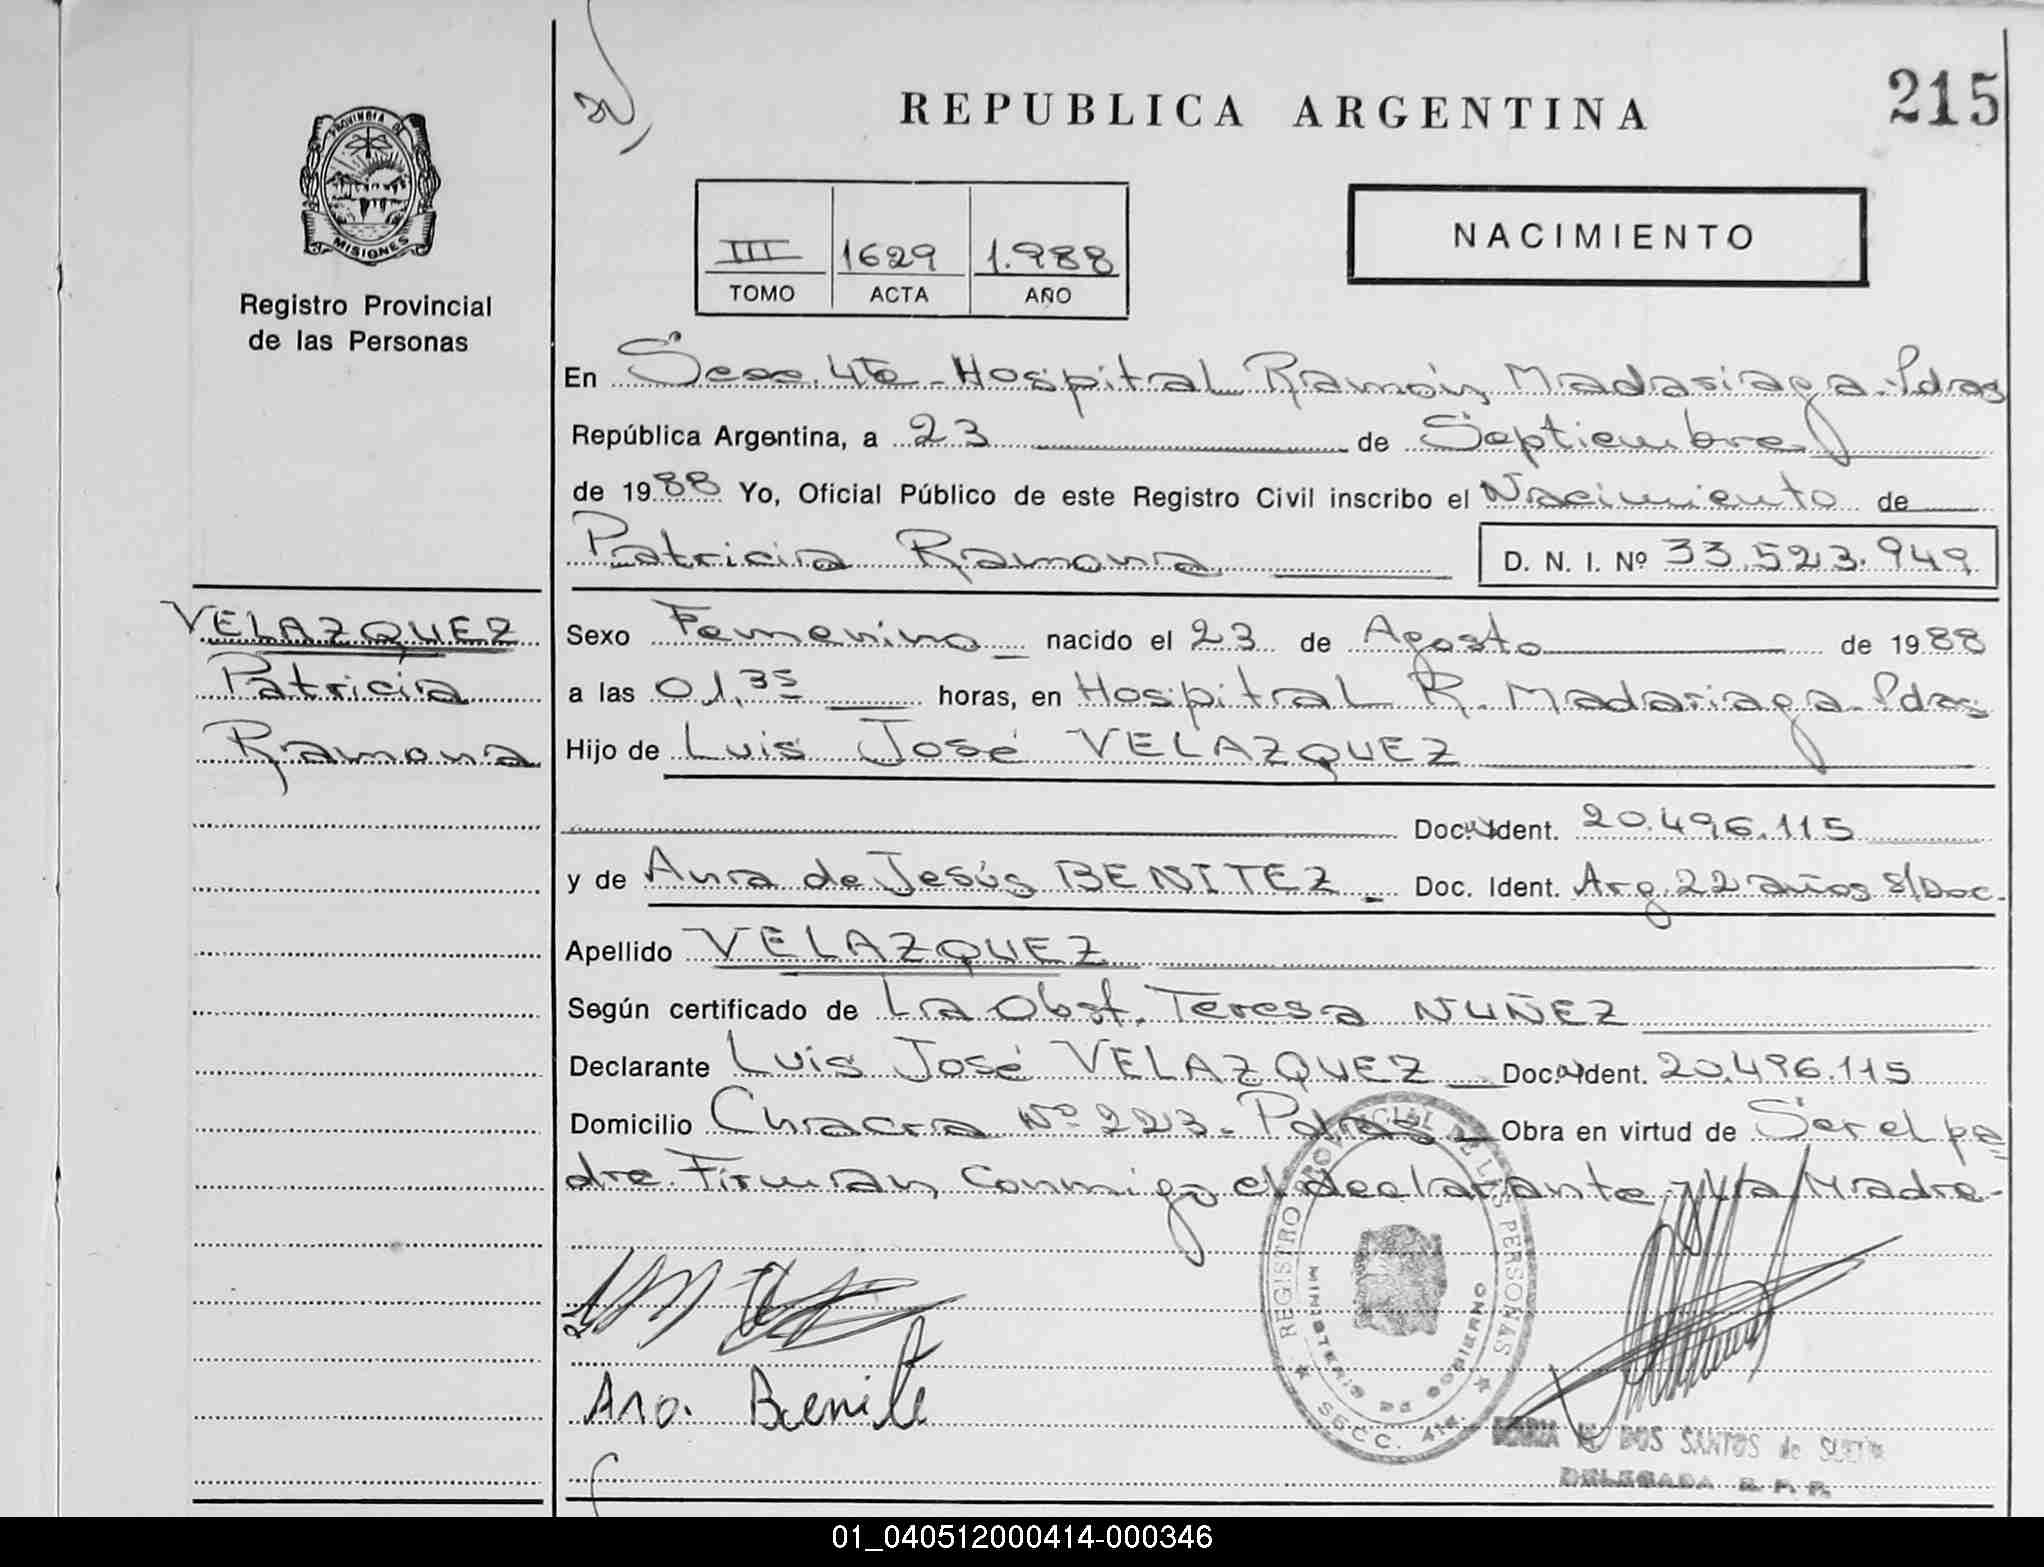 215
REPUBLICA ARGENTINA
PROVINCIA DE
MISIONES
Registro Provincial
de las Personas
NACIMIENTO
III 1629 1.988
TOMO ACTA AÑO
En Secc. 4ta - Hospital Ramón Madariaga - Pdas
República Argentina, a 23 de Septiembre
de 1988 Yo, Oficial Público de este Registro Civil inscribo el Nacimiento de
Patricia Ramona D. N. I. Nº 33.523.949
VELAZQUEZ
Patricia
Ramona
Sexo Femenino nacido el 23 de Agosto de 1988
a las 01,35 horas, en Hospital R. Madariaga - Pdas
Hijo de Luis José VELAZQUEZ
Doc. Ident. 20.496.115
y de Ana de Jesús BENITEZ - Doc. Ident. Arg. 22 años S/Doc.
Apellido VELAZQUEZ
Según certificado de La Obst. Teresa NUÑEZ
Declarante Luis José VELAZQUEZ Doc. Ident. 20.496.115
Domicilio Chacra Nº 223 - Pdas - Obra en virtud de Ser el pa
dre. Firman conmigo el declarante y la Madre -
REGISTRO PROVINCIAL DE LAS PERSONAS
MINISTERIO DE GOBIERNO
SECC. 4ta.
Ana. Benite
DOS SANTOS de
DELEGADA R. P. P.
01_040512000414-000346